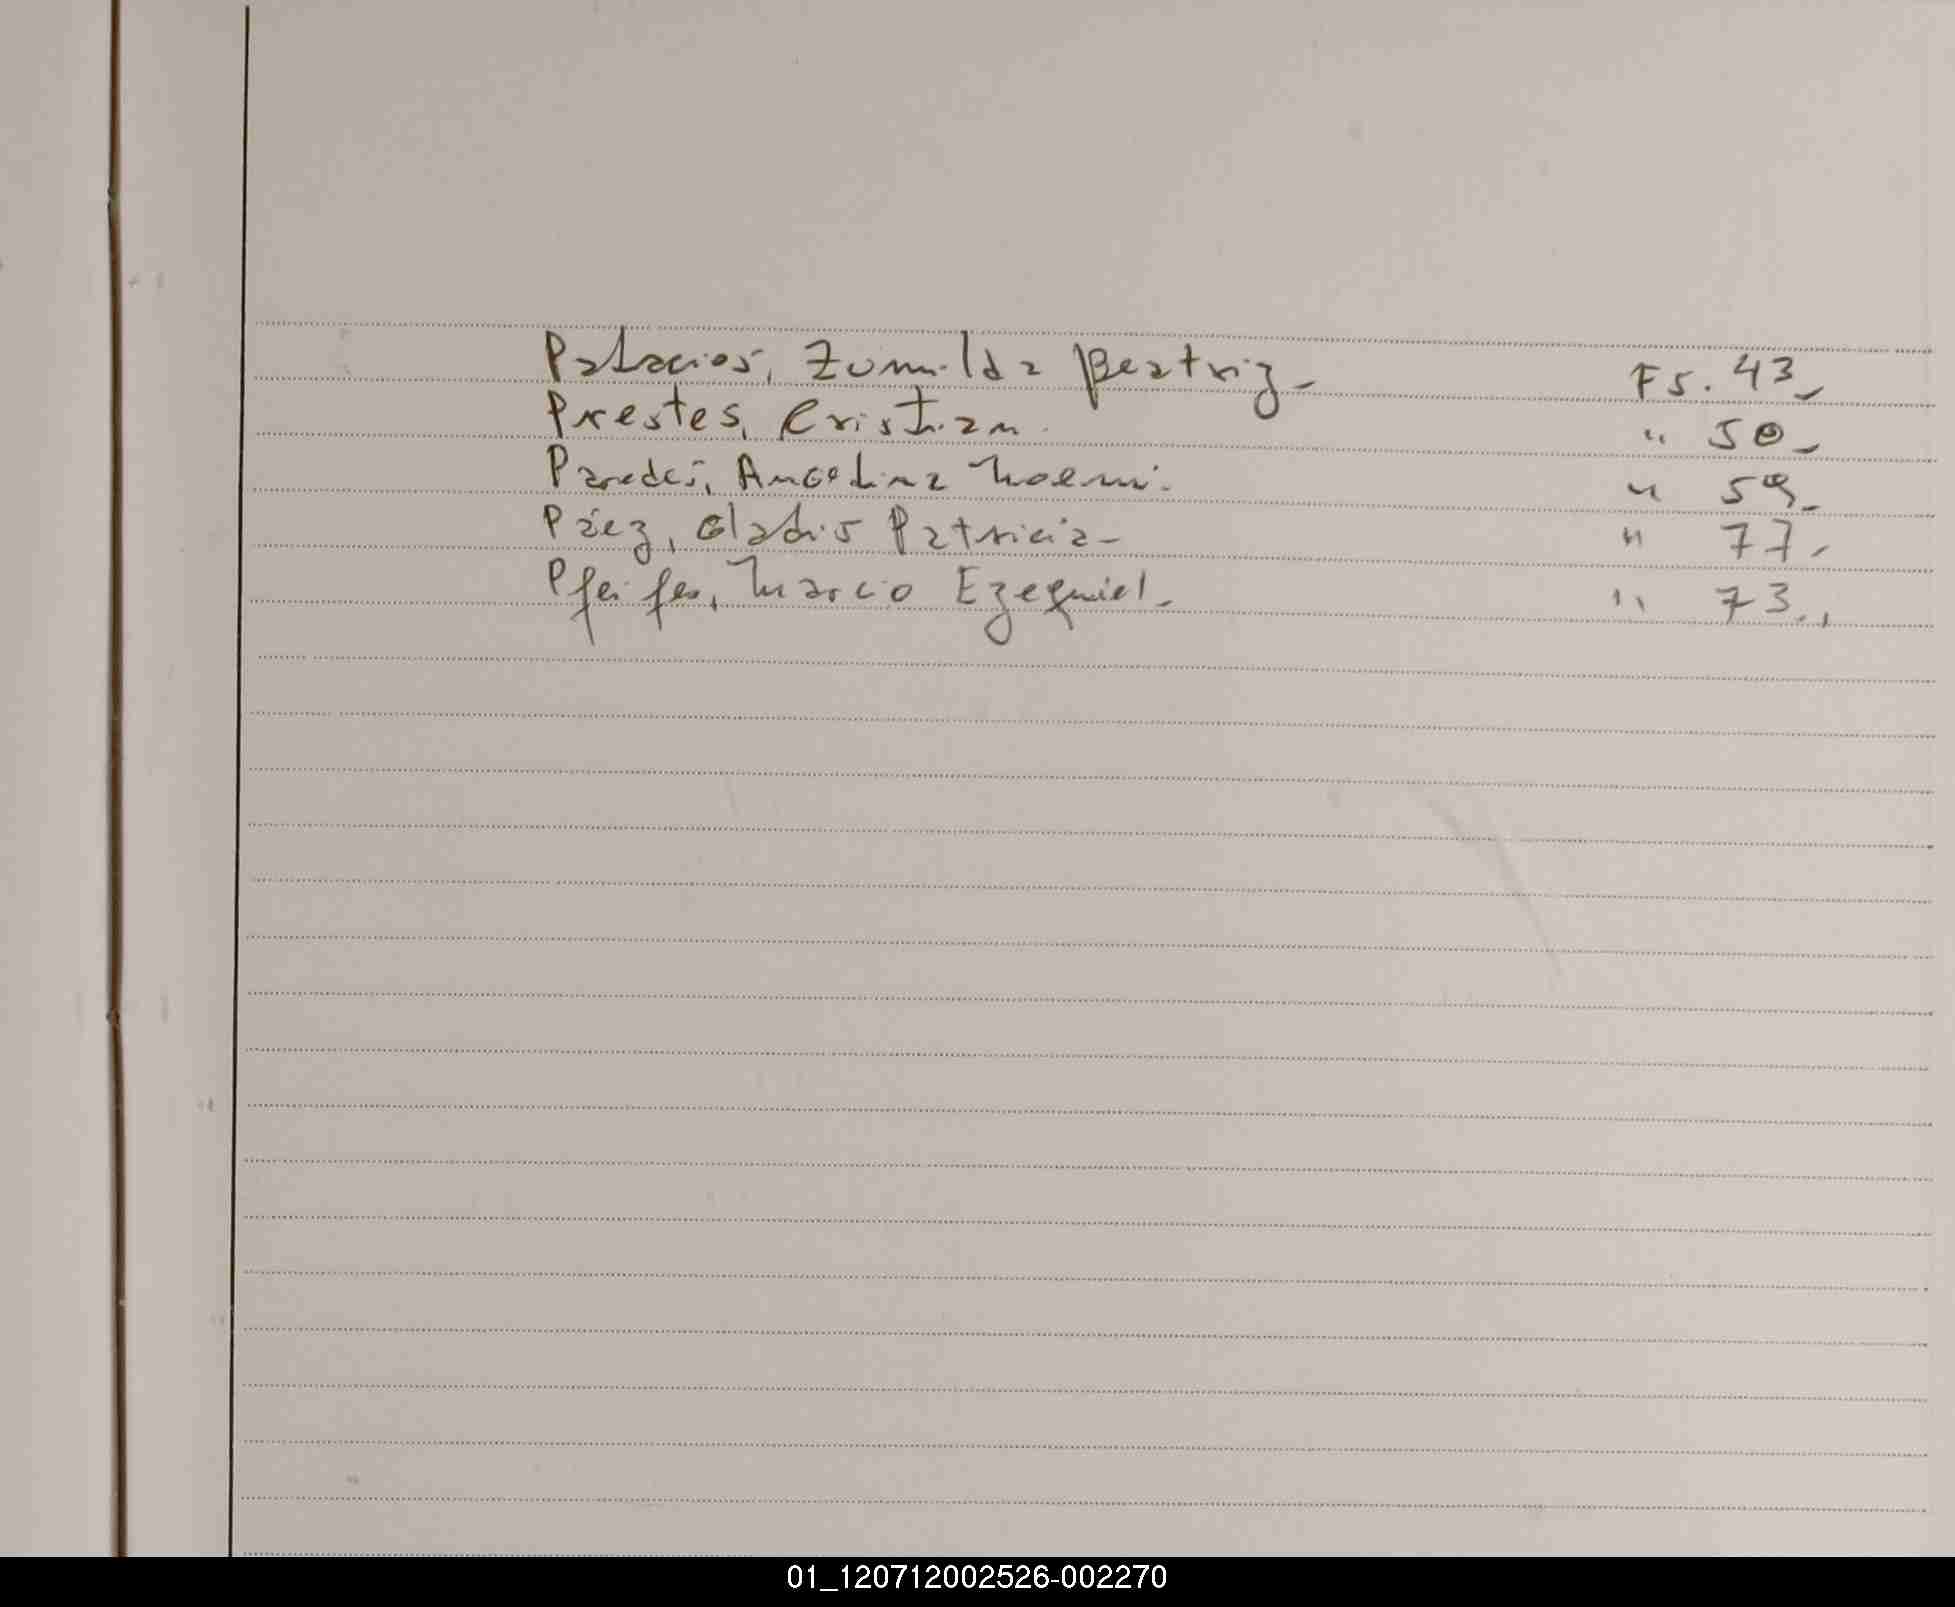 Palacios, Zumilda Beatriz - Fs. 43 -
Prestes, Cristian. " 50 -
Paredes, Angelina Noemi. " 59 -
Páez, Gladis Patricia - " 77 -
Pfeifer, Marcio Ezequiel - " 73 -
01_120712002526-002270